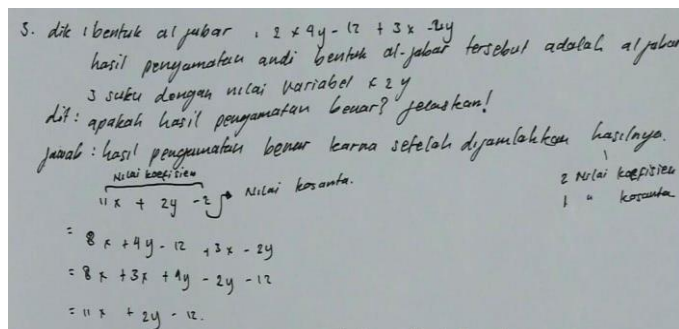 3. dik : bentuk aljabar : 2 x 4y - 12 + 3x - 2y
hasil pengamatan andi bentuk al-jabar tersebut adalah aljabar
3 suku dengan nilai variabel x 2 y
dit : apakah hasil pengamatan benar? jelaskan!
jawab : hasil pengamatan benar karna setelah dijumlahkan hasilnya.
Nilai koefisien
11x + 2y - 2 → Nilai kosanta.
2 Nilai koefisien
1 " kosanta
= 8x + 4y - 12 + 3x - 2y
= 8x + 3x + 4y - 2y - 12
= 11x + 2y - 12.